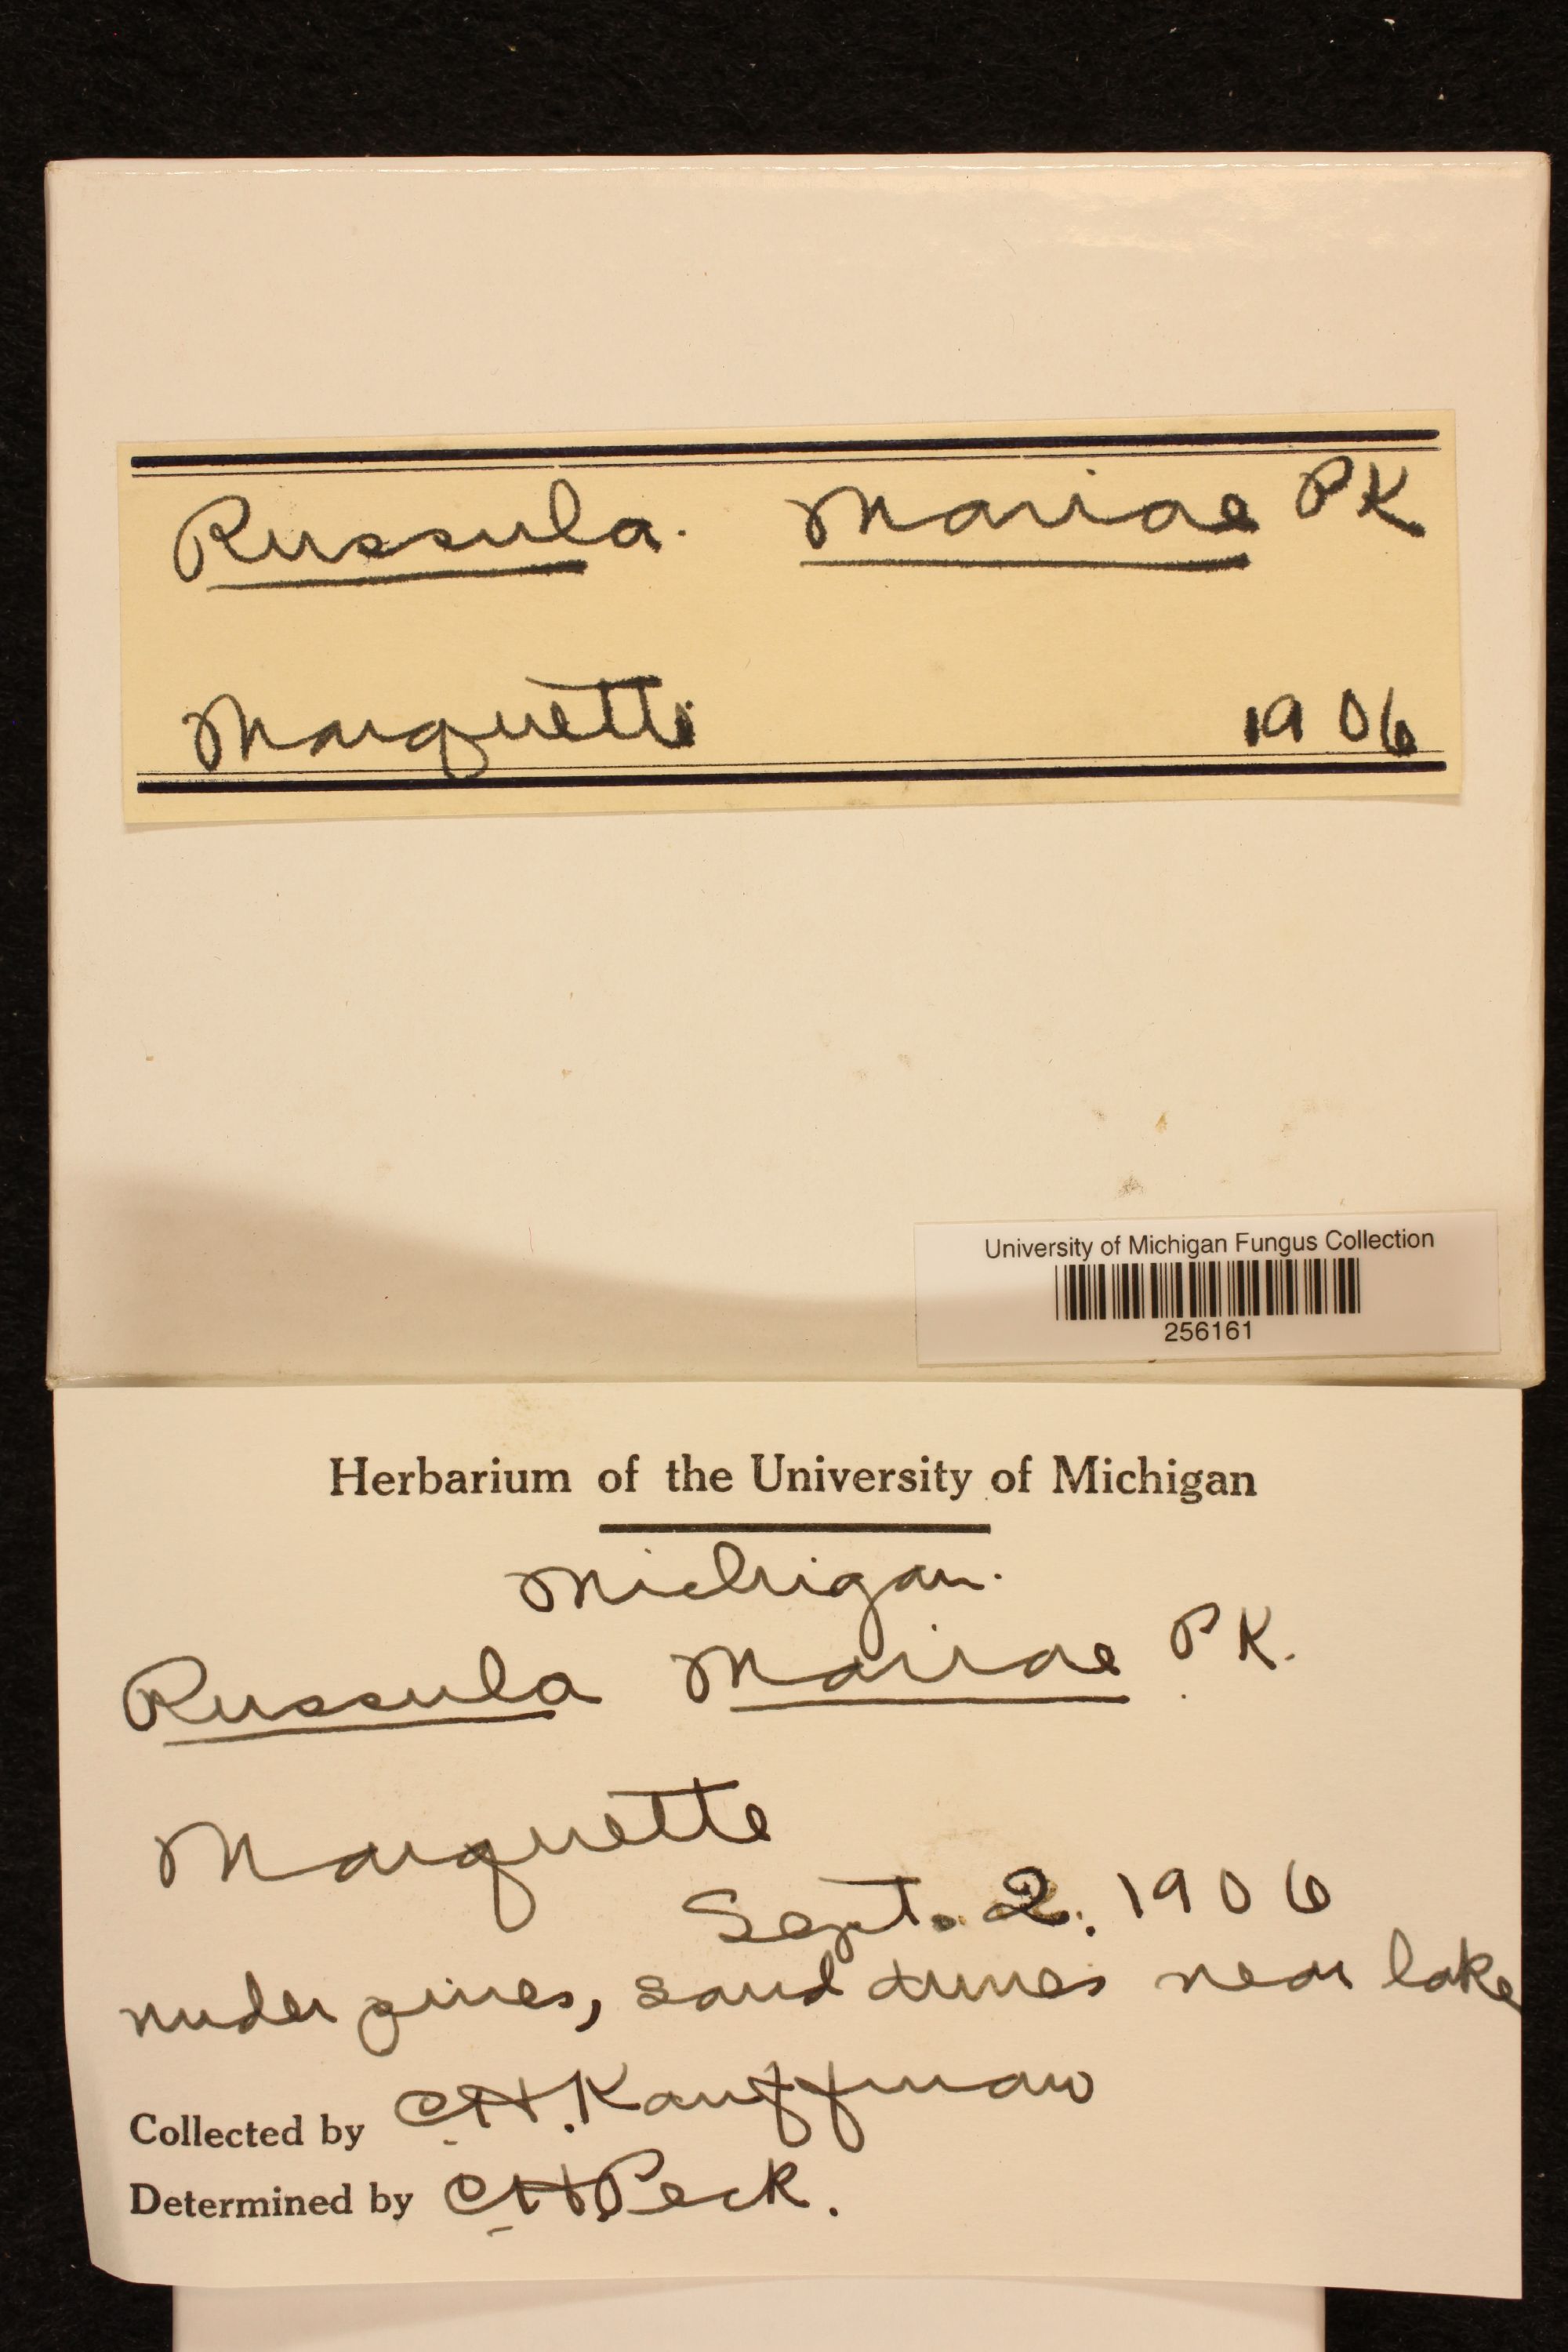 Russula. Mariae PK
Marquette 1906
University of Michigan Fungus Collection
256161
Herbarium of the University of Michigan
Michigan.
Russula Mariae PK.
Marquette
Sept. 2. 1906
under pines, sand dunes near lake
Collected by C.H. Kauffman
Determined by C.H. Peck.